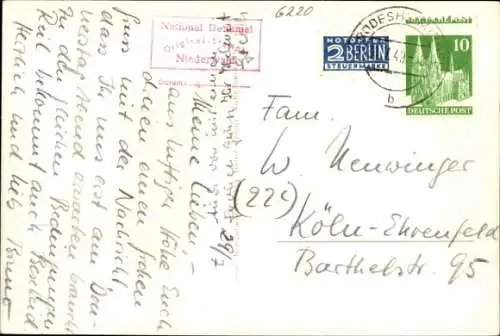 6220
National Denkmal
Original-
Niederwald
NOTOPFER
2 BERLIN
STEUERMARKE
RÜDESH
b
10
DEUTSCHE POST
29/7
Meine Lieben –
aus luftiger Höhe Euch
Lieben einen frohen
Gruss mit der Nachricht,
dass Ihr uns erst am Don-
nerstag Abend erwarten braucht
Zu den gleichen Bedingungen
Ruth bekommt auch Bescheid
Herzlich und lieb
Bruno
Fam.
W Neuwinger
(22c)
Köln-Ehrenfeld
Barthelstr. 95